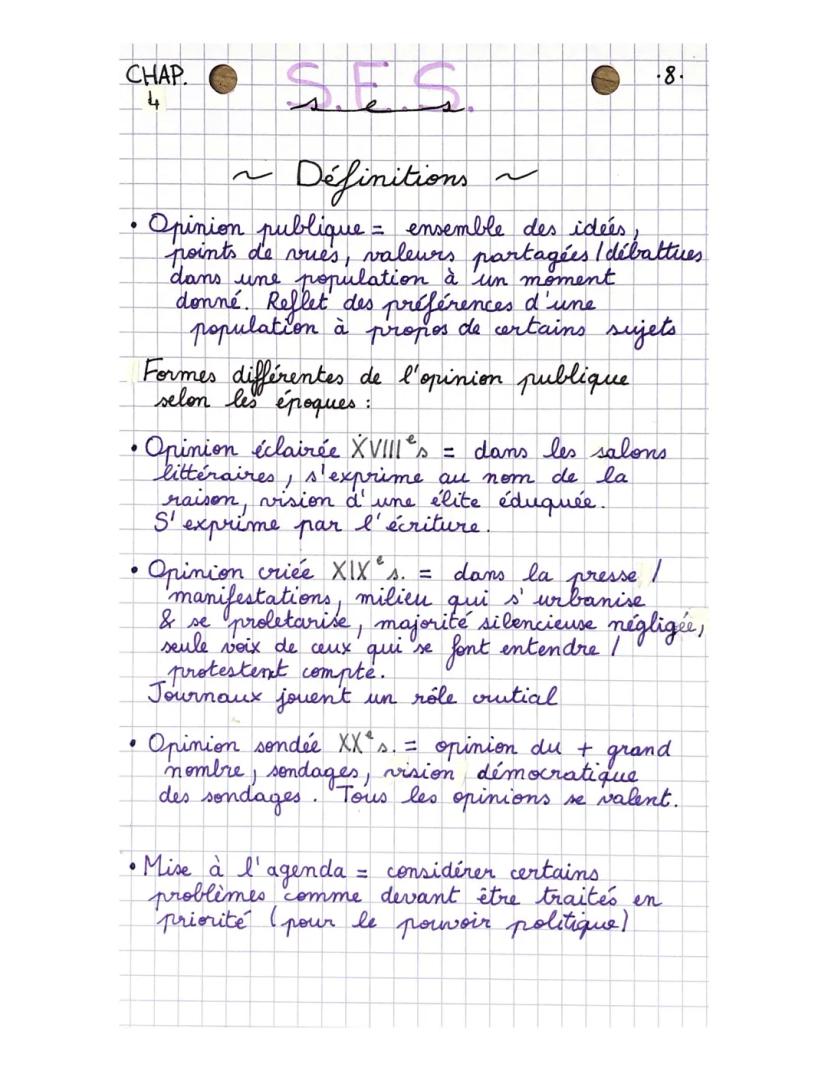 CHAP. S.E.S. .8.
4 s e s.
~ Définitions ~
• Opinion publique = ensemble des idées,
points de vues, valeurs partagées / débattues
dans une population à un moment
donné. Reflet des préférences d'une
population à propos de certains sujets
Formes différentes de l'opinion publique
selon les époques :
• Opinion éclairée XVIIIᵉs = dans les salons
littéraires, s'exprime au nom de la
raison, vision d'une élite éduquée.
S'exprime par l'écriture.
• Opinion criée XIXᵉs. = dans la presse /
manifestations, milieu qui s'urbanise
& se proletarise, majorité silencieuse négligée,
seule voix de ceux qui se font entendre /
protestent compte.
Journaux jouent un rôle crutial
• Opinion sondée XXᵉs. = opinion du + grand
nombre, sondages, vision démocratique
des sondages. Tous les opinions se valent.
• Mise à l'agenda = considérer certains
problèmes comme devant être traités en
priorité (pour le pouvoir politique)